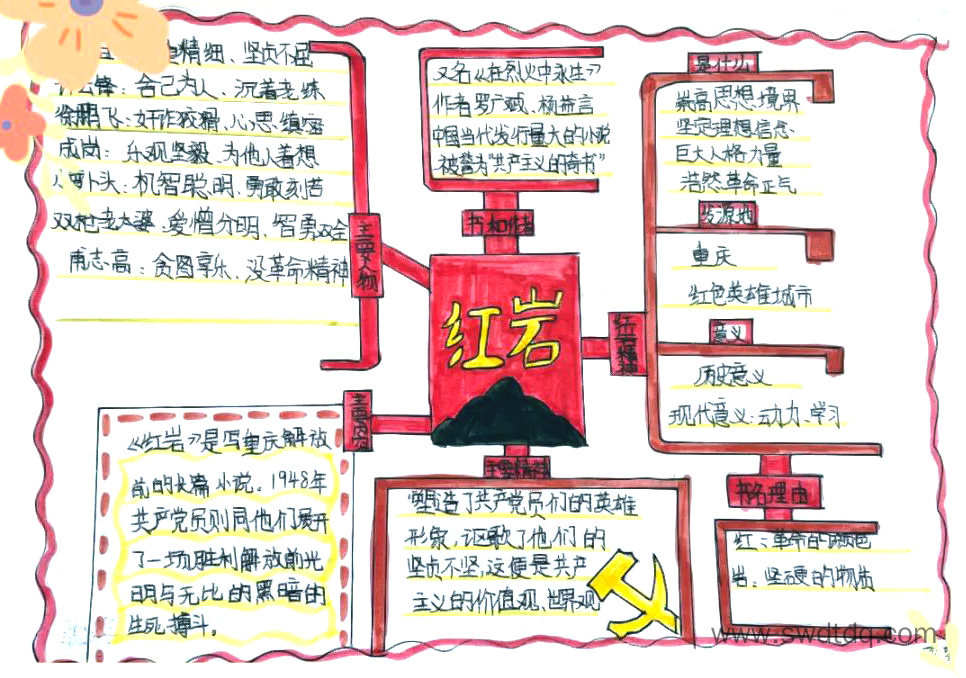 精细、坚贞不屈
云锋：舍己为人、沉着老练
徐鹏飞：奸诈狡猾、心思缜密
成岗：乐观坚毅、为他人着想
小萝卜头：机智聪明、勇敢刻苦
双枪老太婆：爱憎分明、智勇双全
甫志高：贪图享乐、没革命精神
主要人物
又名《在烈火中永生》
作者罗广斌、杨益言
中国当代发行量大的小说
被誉为“共产主义的奇书”
书和作者
是什么
崇高思想境界
坚定理想信念
巨大人格力量
浩然革命正气
发源地
重庆
红色英雄城市
意义
历史意义
现代意义：动力、学习
红岩精神
红岩
主要内容
《红岩》是写重庆解放
前的长篇小说。1948年
共产党员则同他们展开
了一场胜利解放前光
明与无比的黑暗的
生死搏斗。
主要精神
塑造了共产党员们的英雄
形象，讴歌了他们的
坚贞不坚，这便是共产
主义的价值观、世界观
书名理由
红：革命的颜色
岩：坚硬的物质
www.swdtdq.com